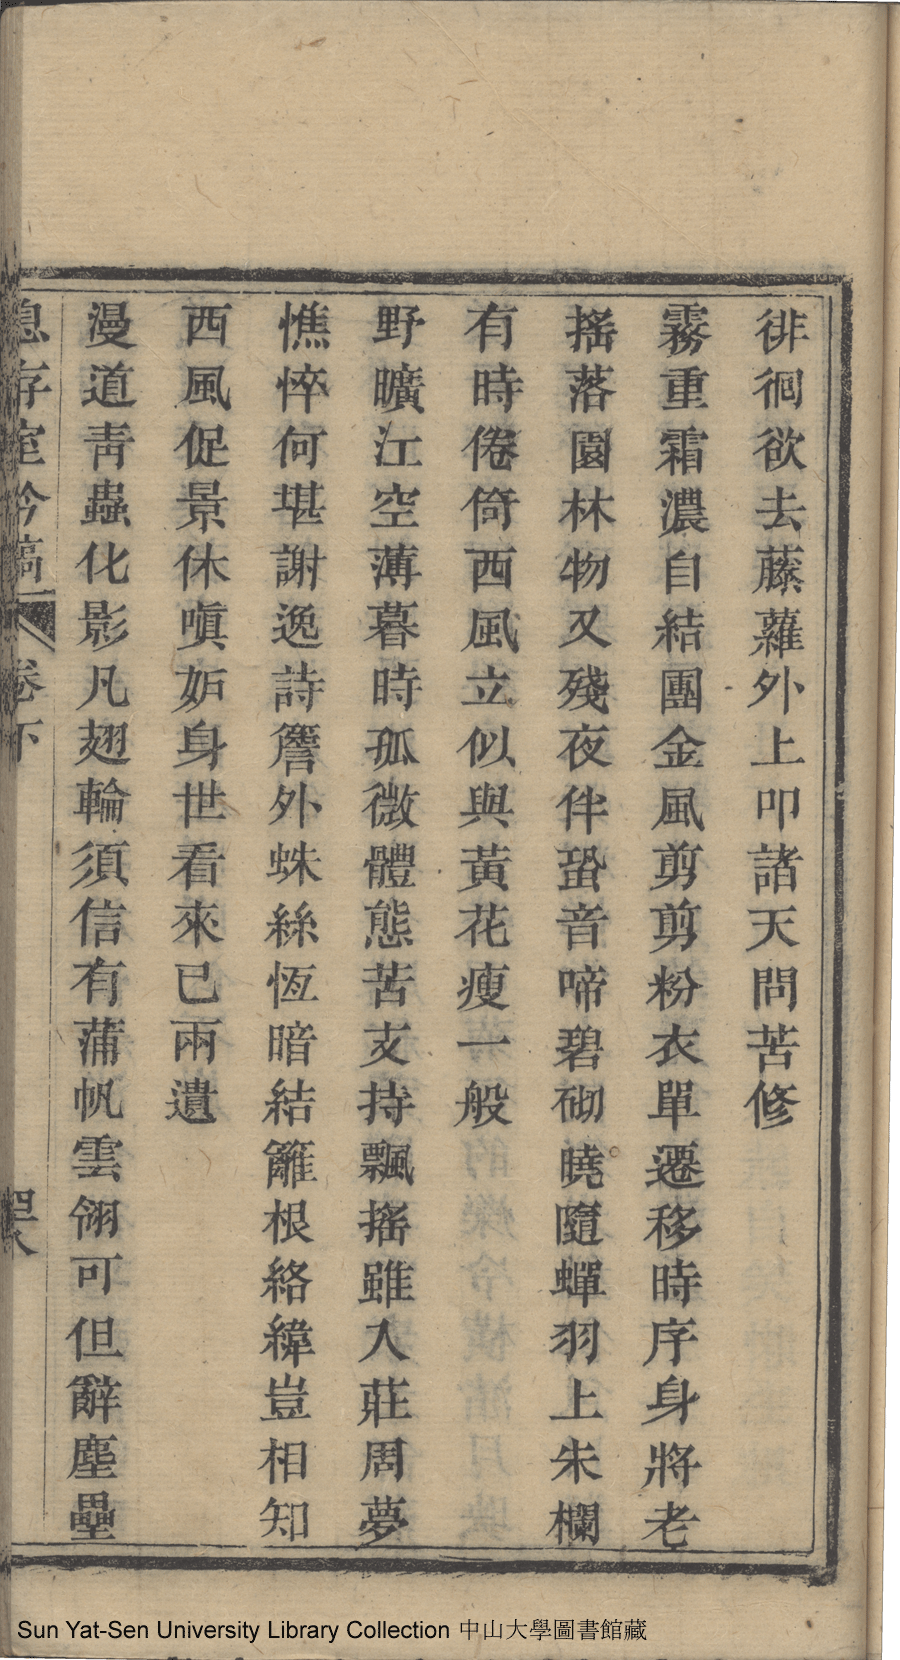 徘徊欲去藤蘿外上叩諸天問苦修
霧重霜濃自結團金風剪剪粉衣單遷移時序身將老
搖落園林物又殘夜伴蛩音啼碧砌曉隨蟬羽上朱欄
有時倦倚西風立似與黃花瘦一般
野曠江空薄暮時孤微體態苦支持飄搖雖入莊周夢
憔悴何堪謝逸詩簷外蛛絲恆暗結籬根絡緯豈相知
西風促景休嗔妒身世看來已兩遺
漫道青蟲化影凡翅輪須信有蒲帆雲翎可但辭塵壘
息存室吟稿 卷下 四八
Sun Yat-Sen University Library Collection 中山大學圖書館藏